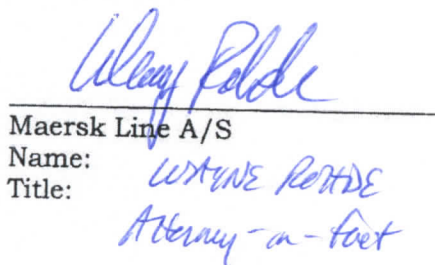 Wayne Rohde
Maersk Line A/S
Name: WAYNE ROHDE
Title: Attorney-in-fact